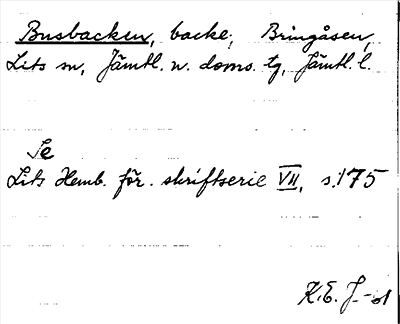 Busbacken, backe; Bringåsen,
Lits sn, Jämtl. n. doms. tg, Jämtl. l.
Se
Lits Hemb. för. skriftserie VII, s. 175
K. E. J-d